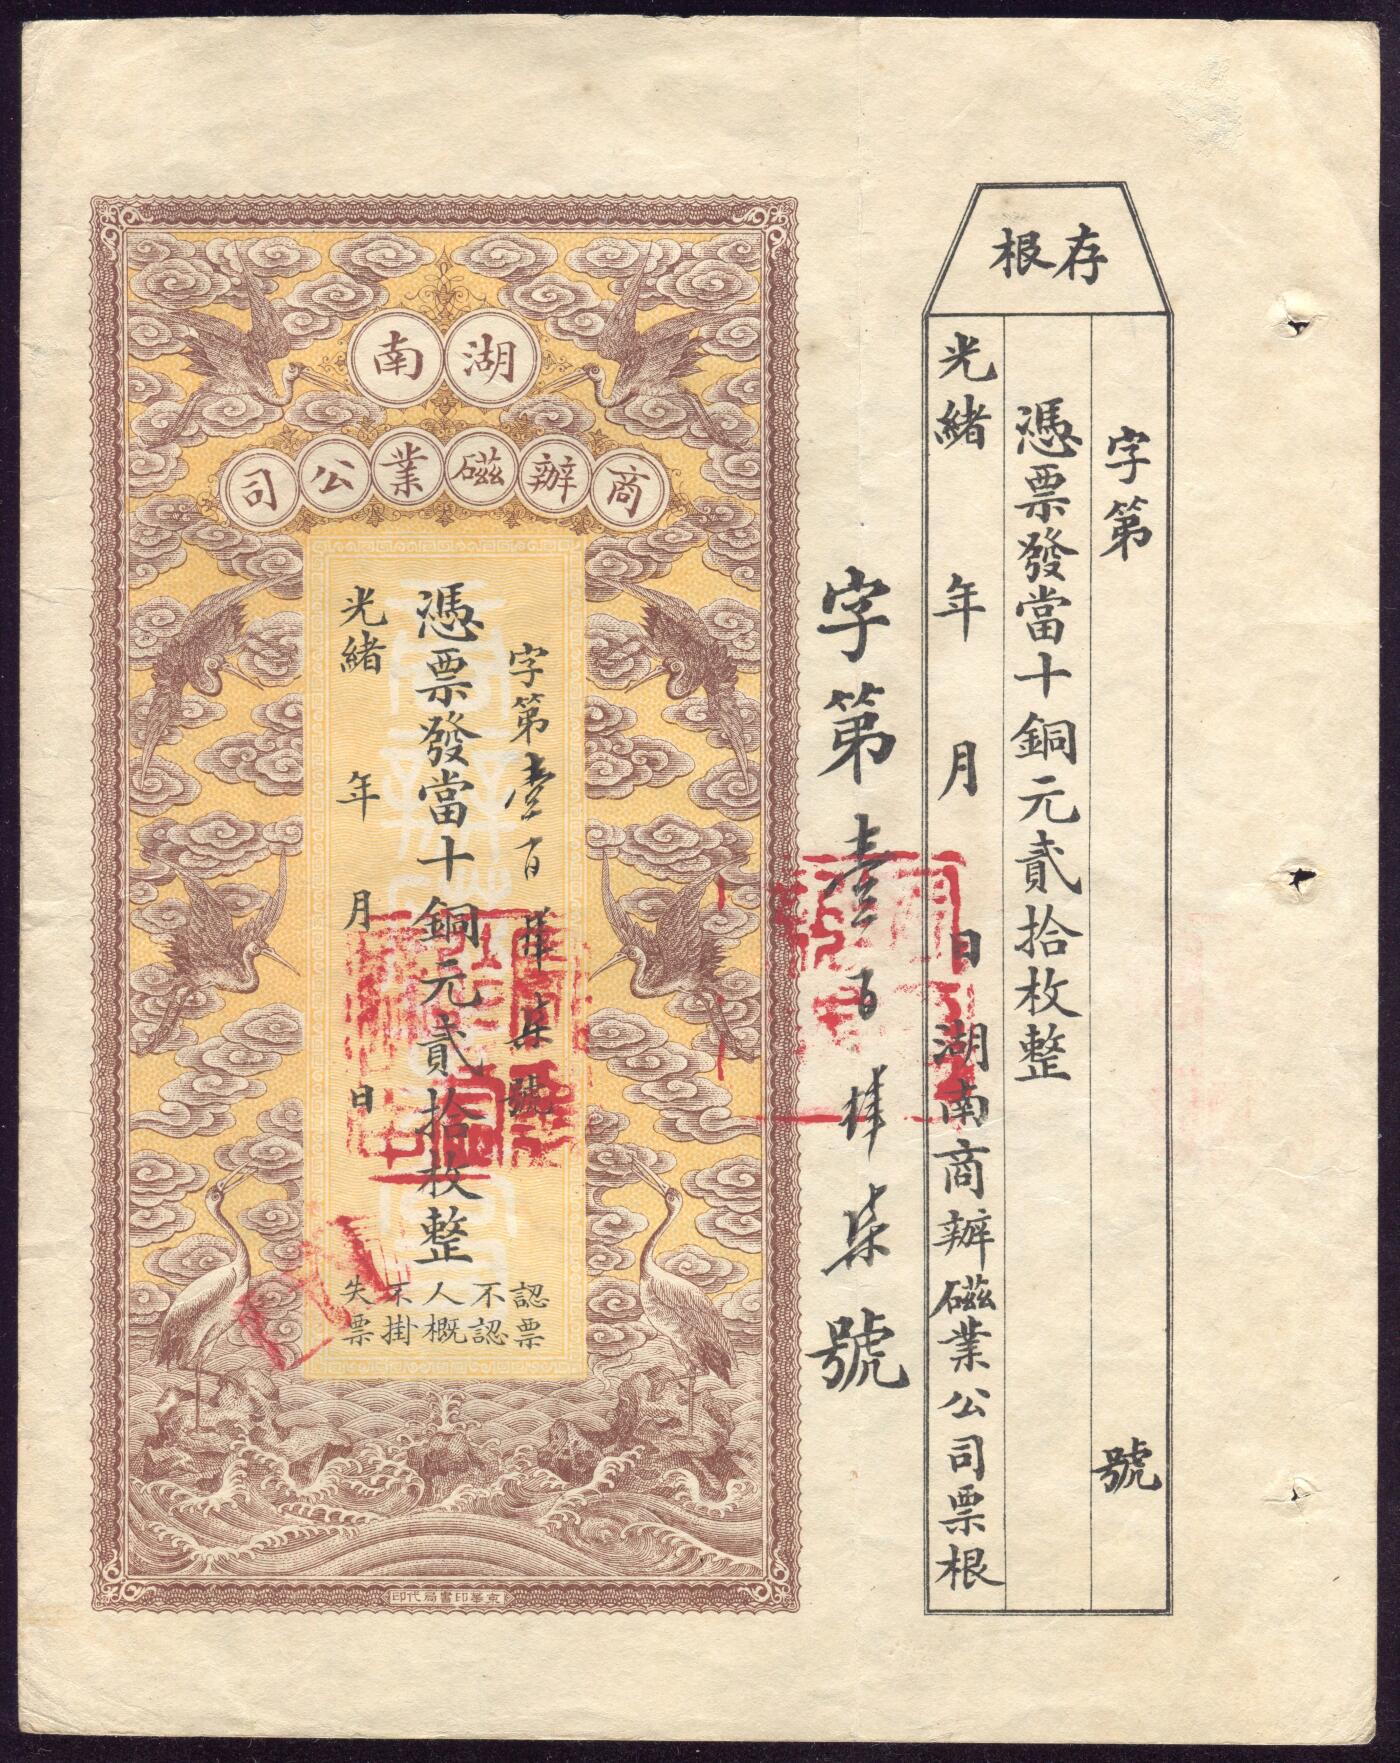 存根
字第 號
憑票發當十銅元貳拾枚整
光緒 年 月 日湖南商辦磁業公司票根
字第壹百肆柒號
湖南
商辦磁業公司
字第壹百肆柒號
憑票發當十銅元貳拾枚整
光緒 年 月 日
認票
不認
人概
不掛
失票
京華印書局代印